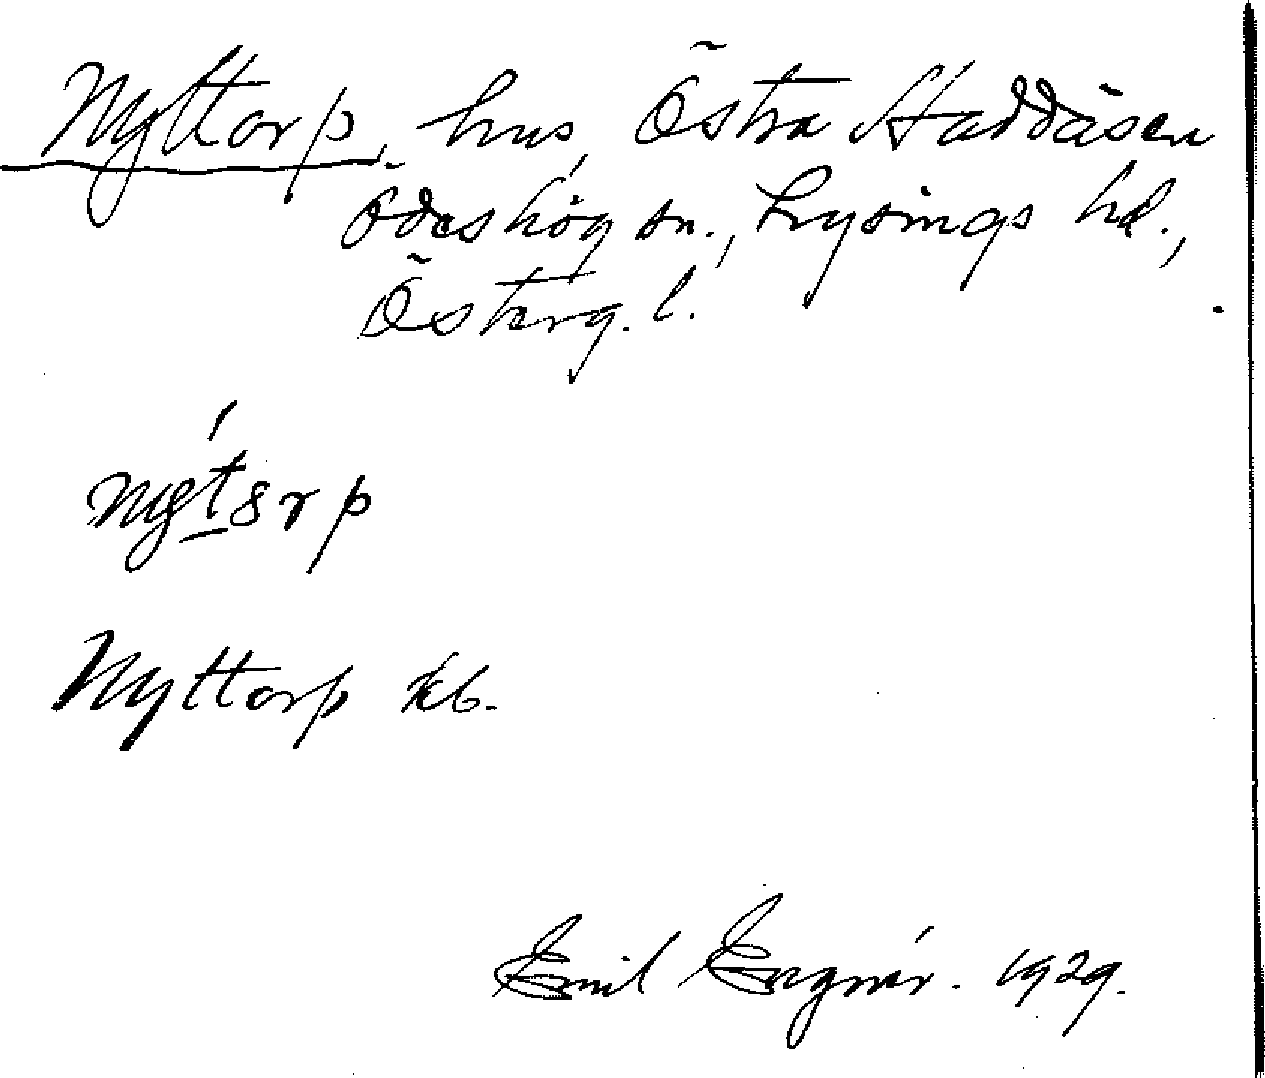 Nyttorp, hus, Östra Haddåsen
Ödeshög sn., Lysings hd.,
Österg. l.
Nyttorp kb.
Emil Engnér. 1929.